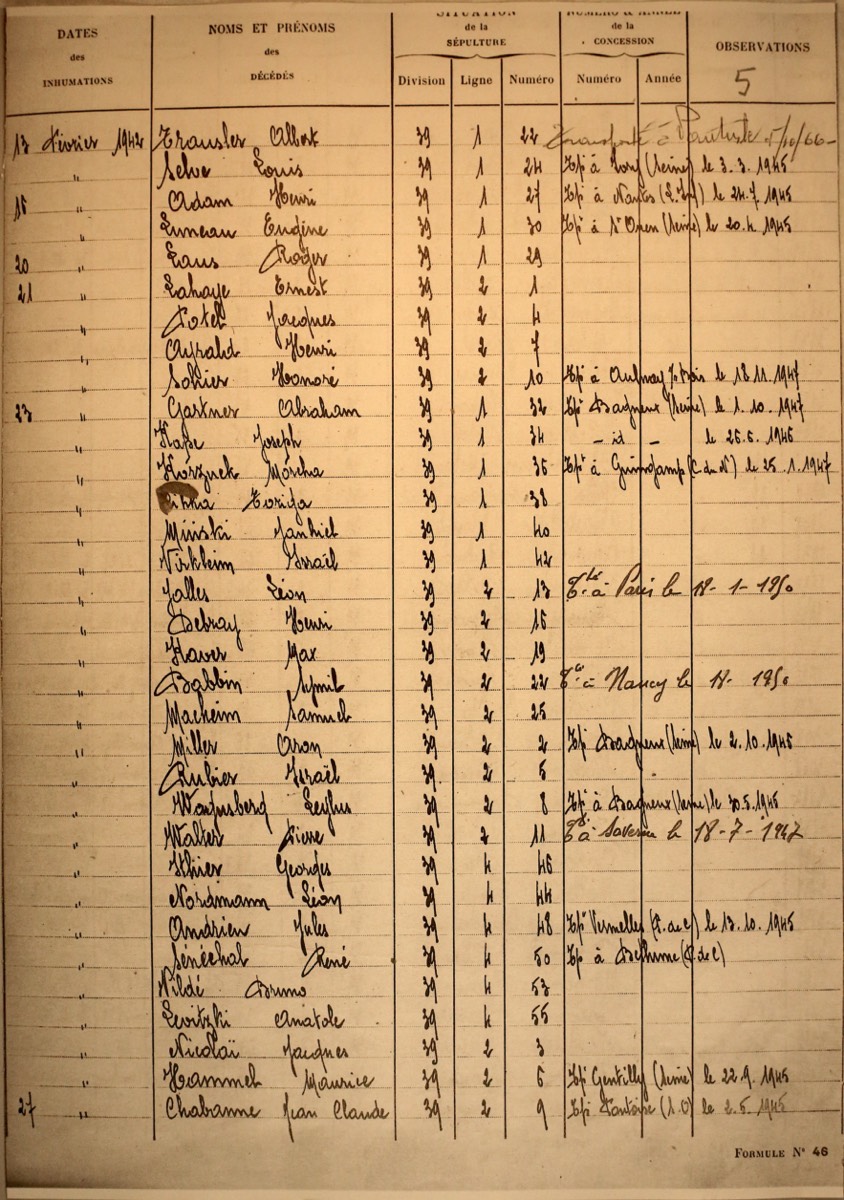 DATES des INHUMATIONS
NOMS ET PRÉNOMS des DÉCÉDÉS
SITUATION de la SÉPULTURE
NUMÉRO & ANNÉE de la CONCESSION
OBSERVATIONS
5
Division Ligne Numéro Numéro Année
13 Février 1942 Albert 39 1 22 Transporté à
" Selve Louis 39 1 24 Tpé à Ivry (Seine) le 3.3.1945
16 " Adam Henri 39 1 27 Tpé à Nantes (L.Inf) le 24.7.1945
" Luneau Eugène 39 1 30 Tpé à St Ouen (Seine) le 20.4.1945
20 " Laus Roger 39 1 29
21 " Lahaye Ernest 39 2 1
" Jacques 39 2 4
" Ayrald Henri 39 2 7
" Sohier Honoré 39 2 10 Tpé à Aulnay s/s Bois le 18.11.1947
23 " Gartner Abraham 39 1 32 Tpé Bagneux (Seine) le 1.10.1947
" Joseph 39 1 34 - id - le
" Korznek Moscha 39 1 36 Tpé à (C du N) le 25.1.1947
" 39 1 38
" Minski Jankiel 39 1 40
" Virkheim Israël 39 1 42
" Jalles Léon 39 2 13 Tté à Paris le 18-1-1950
" Debray Henri 39 2 16
" Haver Max 39 2 19
" Babbin 39 2 22 à Nancy le 18- 1950
" Macheim Samuel 39 2 25
" Miller Aron 39 2 2 Tpé Bagneux (Seine) le 2.10.1945
" Rubier Israël 39 2 5
" 39 2 8 Tpé à Bagneux (Seine) le 30.5.1945
" Walter Pierre 39 2 11 à Saverne le 18-7-1947
" Ithier Georges 39 4 46
" Nordmann Léon 39 4 44
" Andrieu Jules 39 4 48 Tpé Vermelles (P.de C) le 13.10.1945
" Sénéchal René 39 4 50 Tp à Béthune (P.de C)
" Vildé Bruno 39 4 53
" Levitzki Anatole 39 4 55
" Nicolaï Jacques 39 2 3
" Hammel Maurice 39 2 6 Tpé Gentilly (Seine) le 22.9.1945
27 " Chabanne Jean Claude 39 2 9 Tpé Pontoise (S.O) le 2.5.1945
FORMULE N° 46